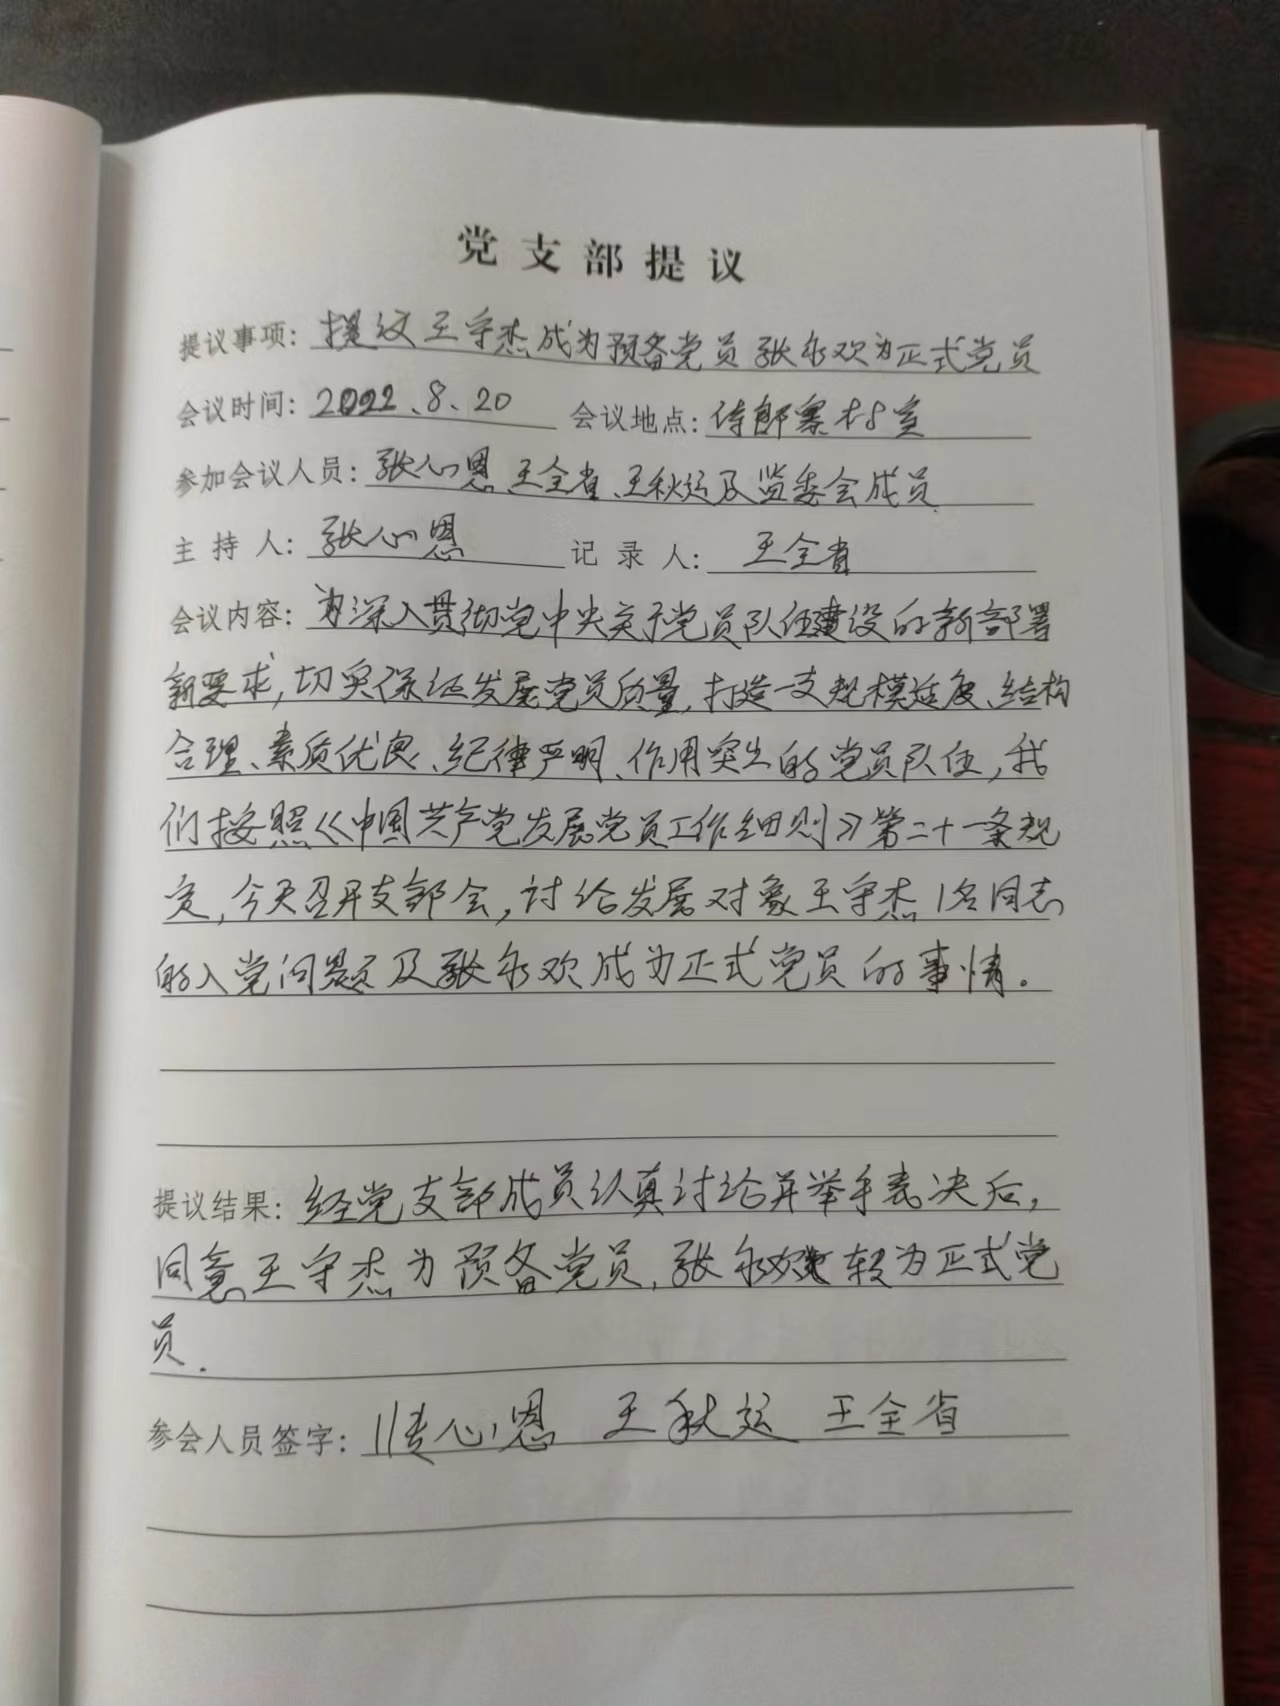 党支部提议
提议事项：提议王守杰成为预备党员 张永欢为正式党员
会议时间：2022.8.20 会议地点：侍郎寨村室
参加会议人员：张心恩 王全省、王秋运及监委会成员
主持人：张心恩 记录人：王全省
会议内容：为深入贯彻党中央关于党员队伍建设的新部署
新要求，切实保证发展党员质量，打造一支规模适度、结构
合理、素质优良、纪律严明、作用突出的党员队伍，我
们按照《中国共产党发展党员工作细则》第二十一条规
定，今天召开支部会，讨论发展对象王守杰1名同志
的入党问题及张永欢成为正式党员的事情。
提议结果：经党支部成员认真讨论并举手表决后，
同意王守杰为预备党员，张永欢转为正式党
员.
参会人员签字：张心恩 王秋运 王全省